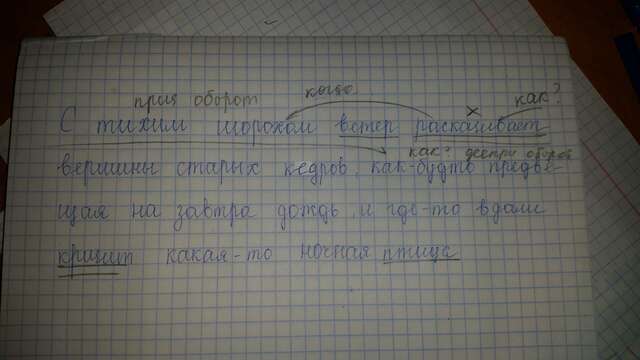 прич оборот как?
С тихим шорохом ветер раскачивает
вершины старых кедров, как-будто предве-
как? деепр оборот
щая на завтра дождь, и где-то вдали
кричит какая-то ночная птица